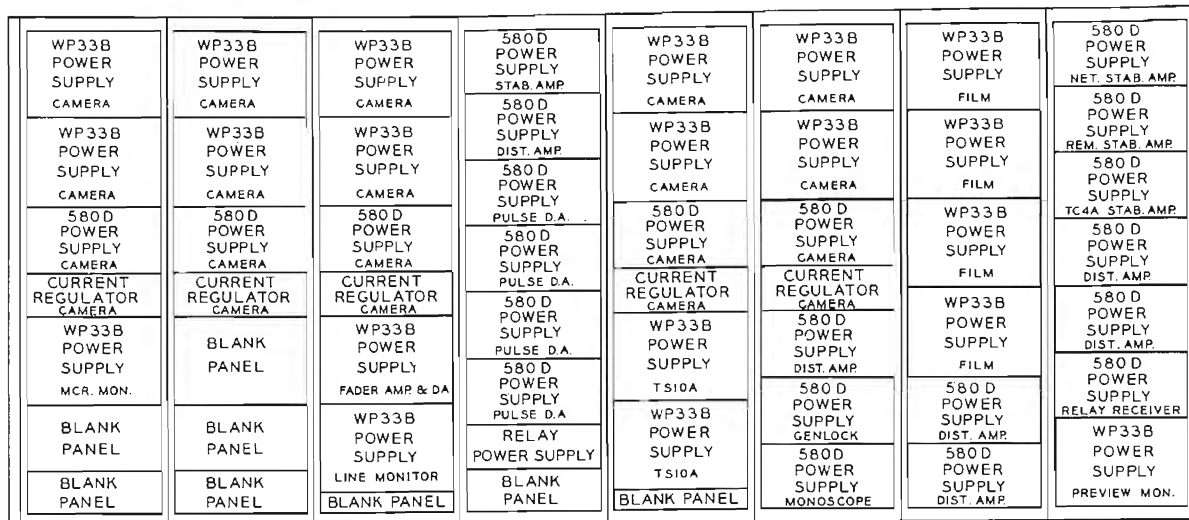 WP33B
POWER
SUPPLY
CAMERA
WP33B
POWER
SUPPLY
CAMERA
580D
POWER
SUPPLY
CAMERA
CURRENT
REGULATOR
CAMERA
WP33B
POWER
SUPPLY
MCR. MON.
BLANK
PANEL
BLANK
PANEL
WP33B
POWER
SUPPLY
CAMERA
WP33B
POWER
SUPPLY
CAMERA
580D
POWER
SUPPLY
CAMERA
CURRENT
REGULATOR
CAMERA
BLANK
PANEL
BLANK
PANEL
BLANK
PANEL
WP33B
POWER
SUPPLY
CAMERA
WP33B
POWER
SUPPLY
CAMERA
580D
POWER
SUPPLY
CAMERA
CURRENT
REGULATOR
CAMERA
WP33B
POWER
SUPPLY
FADER AMP. & DA
WP33B
POWER
SUPPLY
LINE MONITOR
BLANK PANEL
580D
POWER
SUPPLY
STAB. AMP.
580D
POWER
SUPPLY
DIST. AMP.
580D
POWER
SUPPLY
PULSE D.A.
580D
POWER
SUPPLY
PULSE D.A.
580D
POWER
SUPPLY
PULSE D.A.
580D
POWER
SUPPLY
PULSE D.A
RELAY
POWER SUPPLY
BLANK
PANEL
WP33B
POWER
SUPPLY
CAMERA
WP33B
POWER
SUPPLY
CAMERA
580D
POWER
SUPPLY
CAMERA
CURRENT
REGULATOR
CAMERA
WP33B
POWER
SUPPLY
TS10A
WP33B
POWER
SUPPLY
TS10A
BLANK PANEL
WP33B
POWER
SUPPLY
CAMERA
WP33B
POWER
SUPPLY
CAMERA
580D
POWER
SUPPLY
CAMERA
CURRENT
REGULATOR
CAMERA
580D
POWER
SUPPLY
DIST. AMP.
580D
POWER
SUPPLY
GENLOCK
580D
POWER
SUPPLY
MONOSCOPE
WP33B
POWER
SUPPLY
FILM
WP33B
POWER
SUPPLY
FILM
WP33B
POWER
SUPPLY
FILM
WP33B
POWER
SUPPLY
FILM
580D
POWER
SUPPLY
DIST. AMP.
580D
POWER
SUPPLY
DIST. AMP.
580D
POWER
SUPPLY
NET. STAB. AMP.
580D
POWER
SUPPLY
REM. STAB. AMP.
580D
POWER
SUPPLY
TC4A STAB. AMP.
580D
POWER
SUPPLY
DIST. AMP.
580D
POWER
SUPPLY
DIST. AMP.
580D
POWER
SUPPLY
RELAY RECEIVER
WP33B
POWER
SUPPLY
PREVIEW MON.